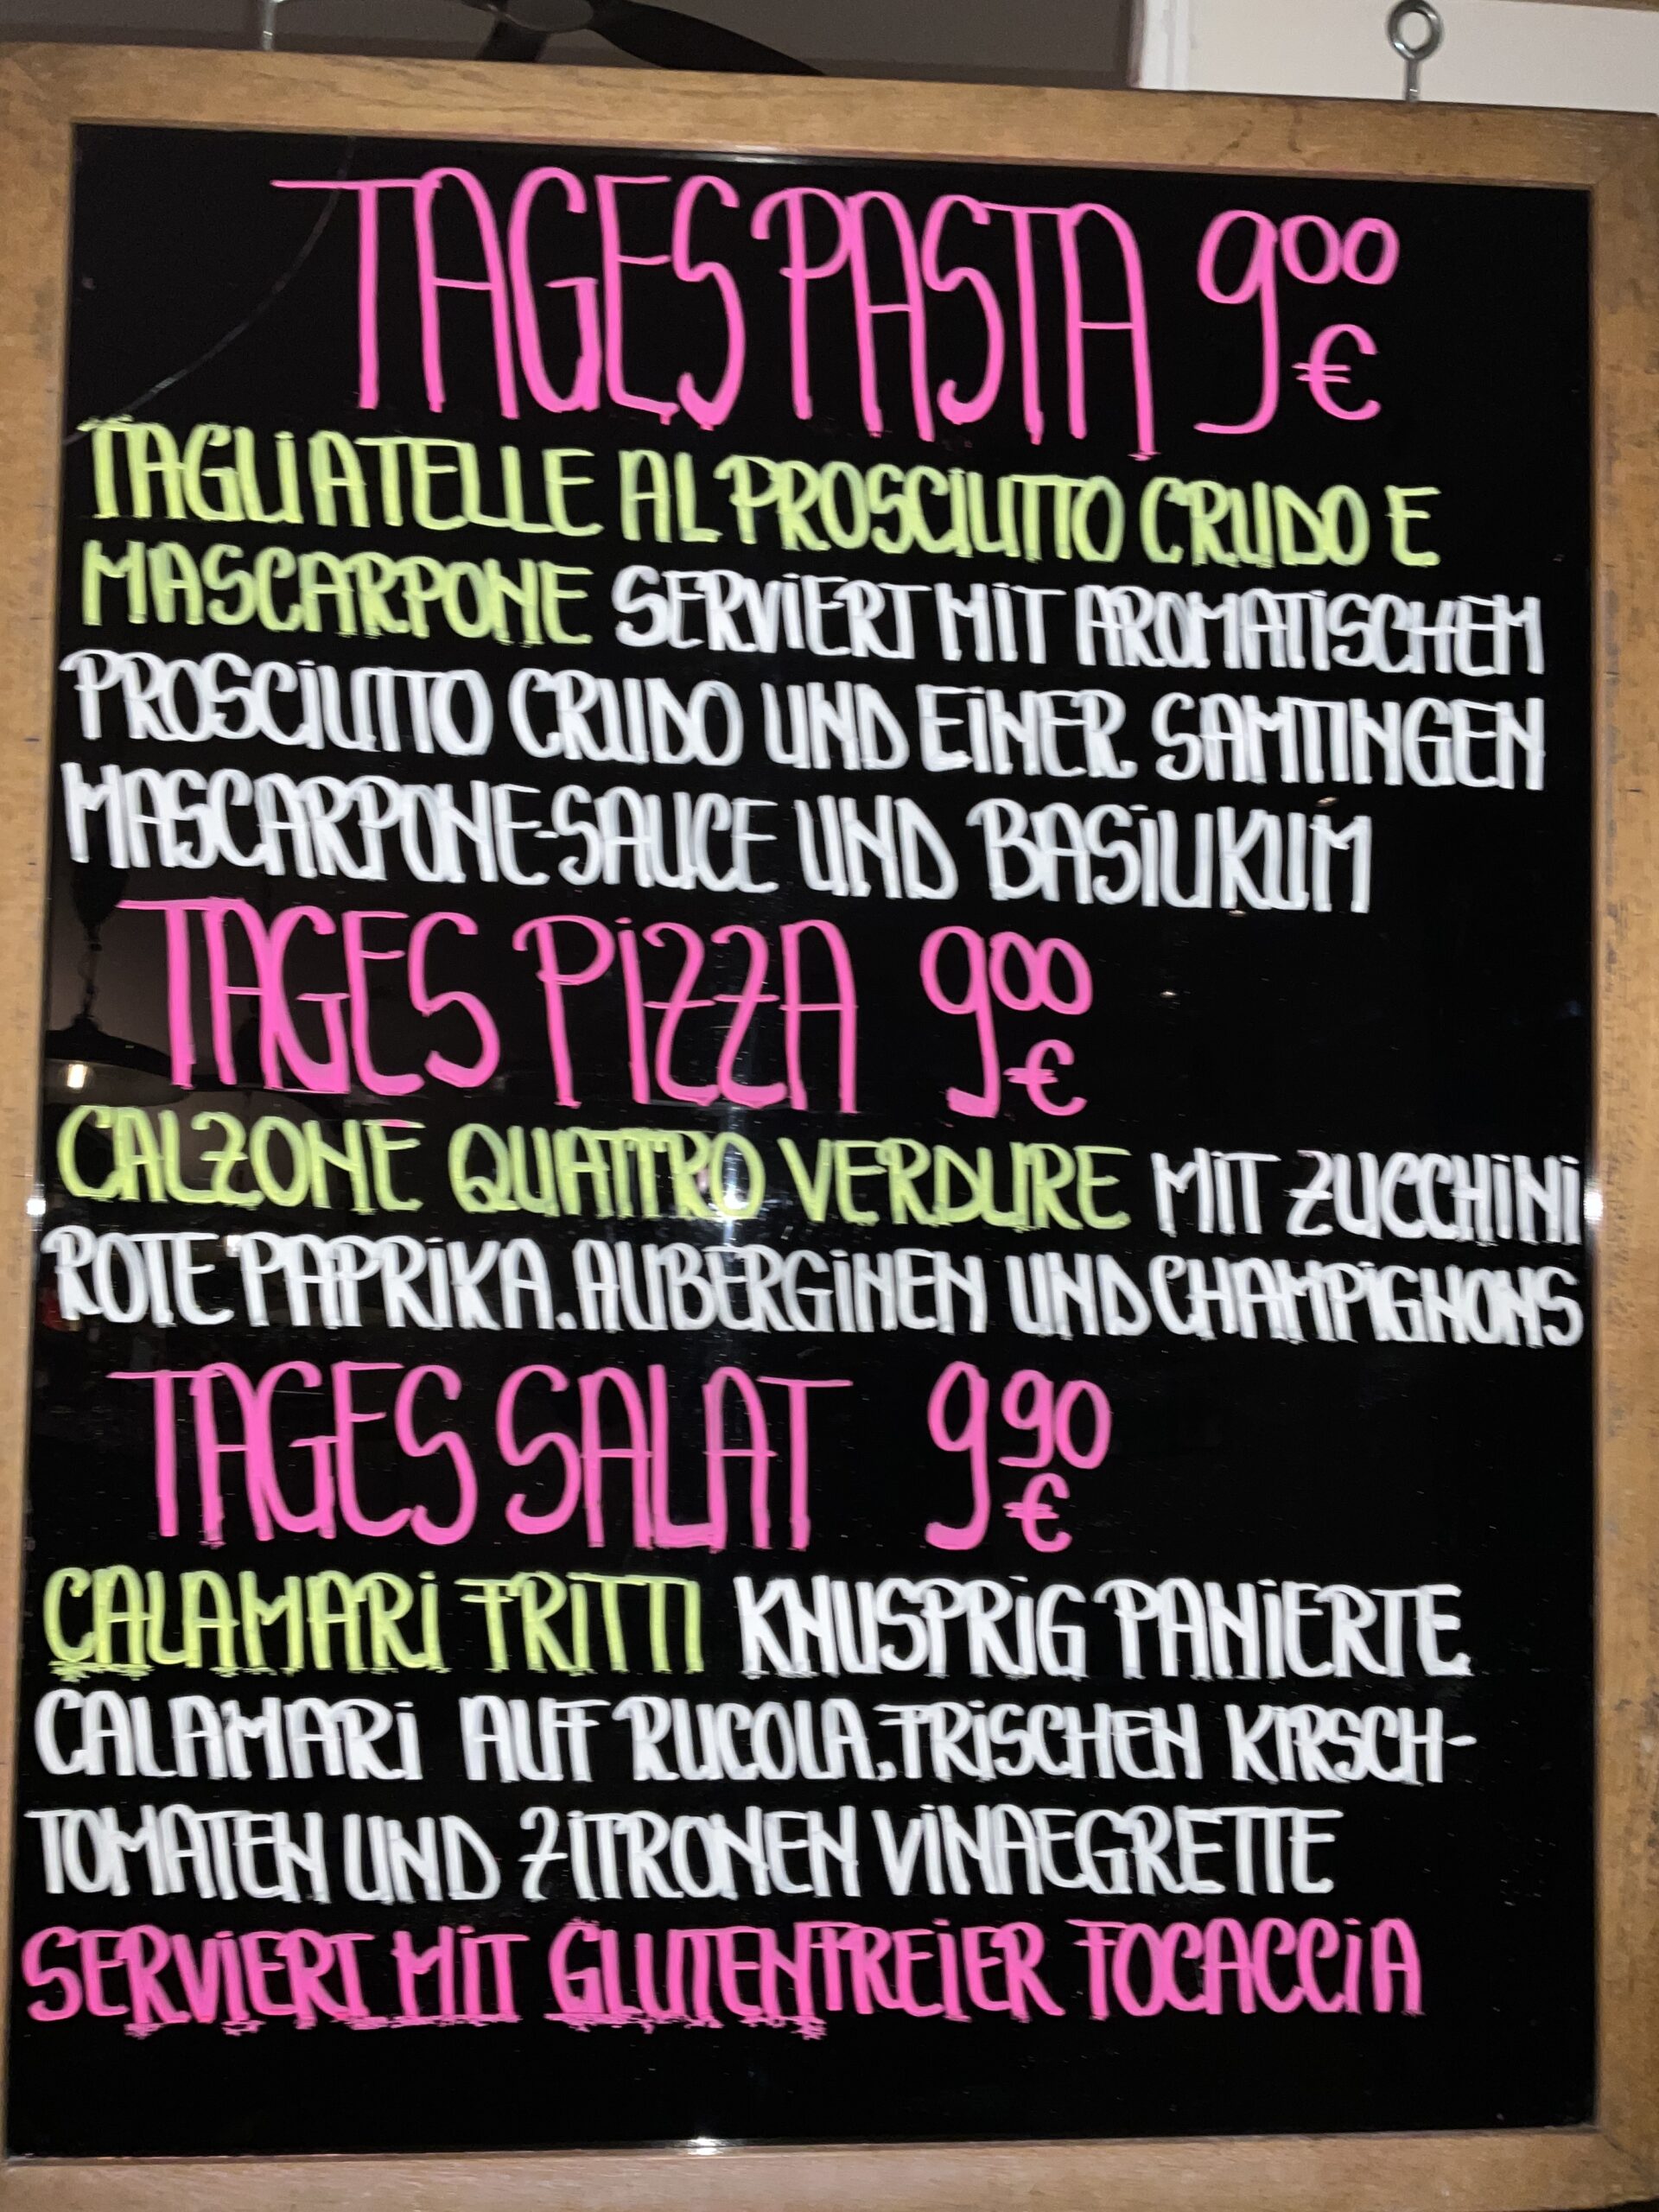 TAGES PASTA 9⁰⁰ €
TAGLIATELLE AL PROSCIUTTO CRUDO E
MASCARPONE SERVIERT MIT AROMATISCHEM
PROSCIUTTO CRUDO UND EINER SAMTINGEN
MASCARPONE-SAUCE UND BASILIKUM
TAGES PIZZA 9⁰⁰ €
CALZONE QUATTRO VERDURE MIT ZUCCHINI
ROTE PAPRIKA, AUBERGINEN UND CHAMPIGNONS
TAGES SALAT 9⁹⁰ €
CALAMARI FRITTI KNUSPRIG PANIERTE
CALAMARI AUF RUCOLA, FRISCHEN KIRSCH-
TOMATEN UND ZITRONEN VINAEGRETTE
SERVIERT MIT GLUTENFREIER FOCACCIA